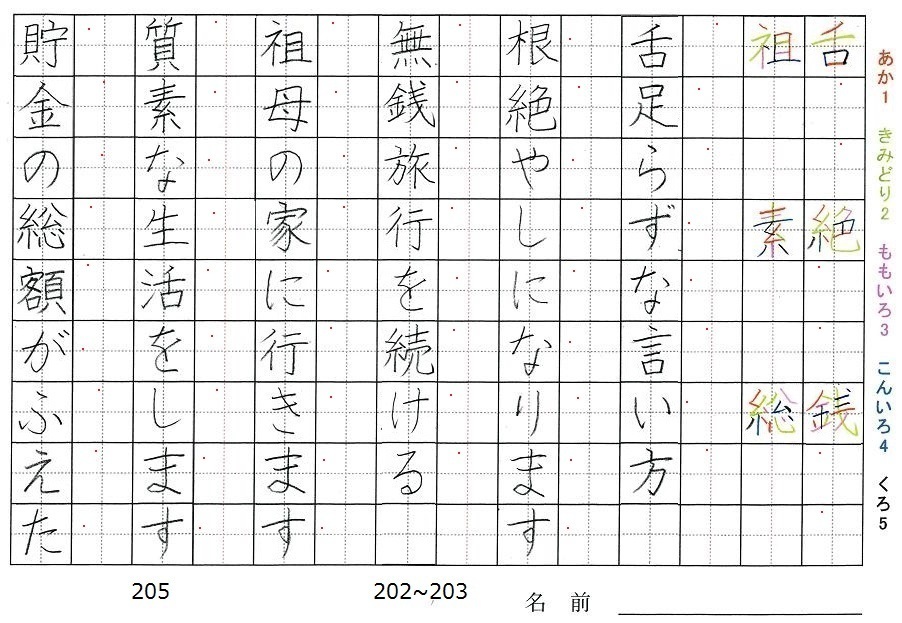 あか1 きみどり2 ももいろ3 こんいろ4 くろ5
舌 絶 銭
祖 素 総
舌足らずな言い方
根絶やしになります
無銭旅行を続ける
祖母の家に行きます
質素な生活をします
貯金の総額がふえた
205
202~203
名前